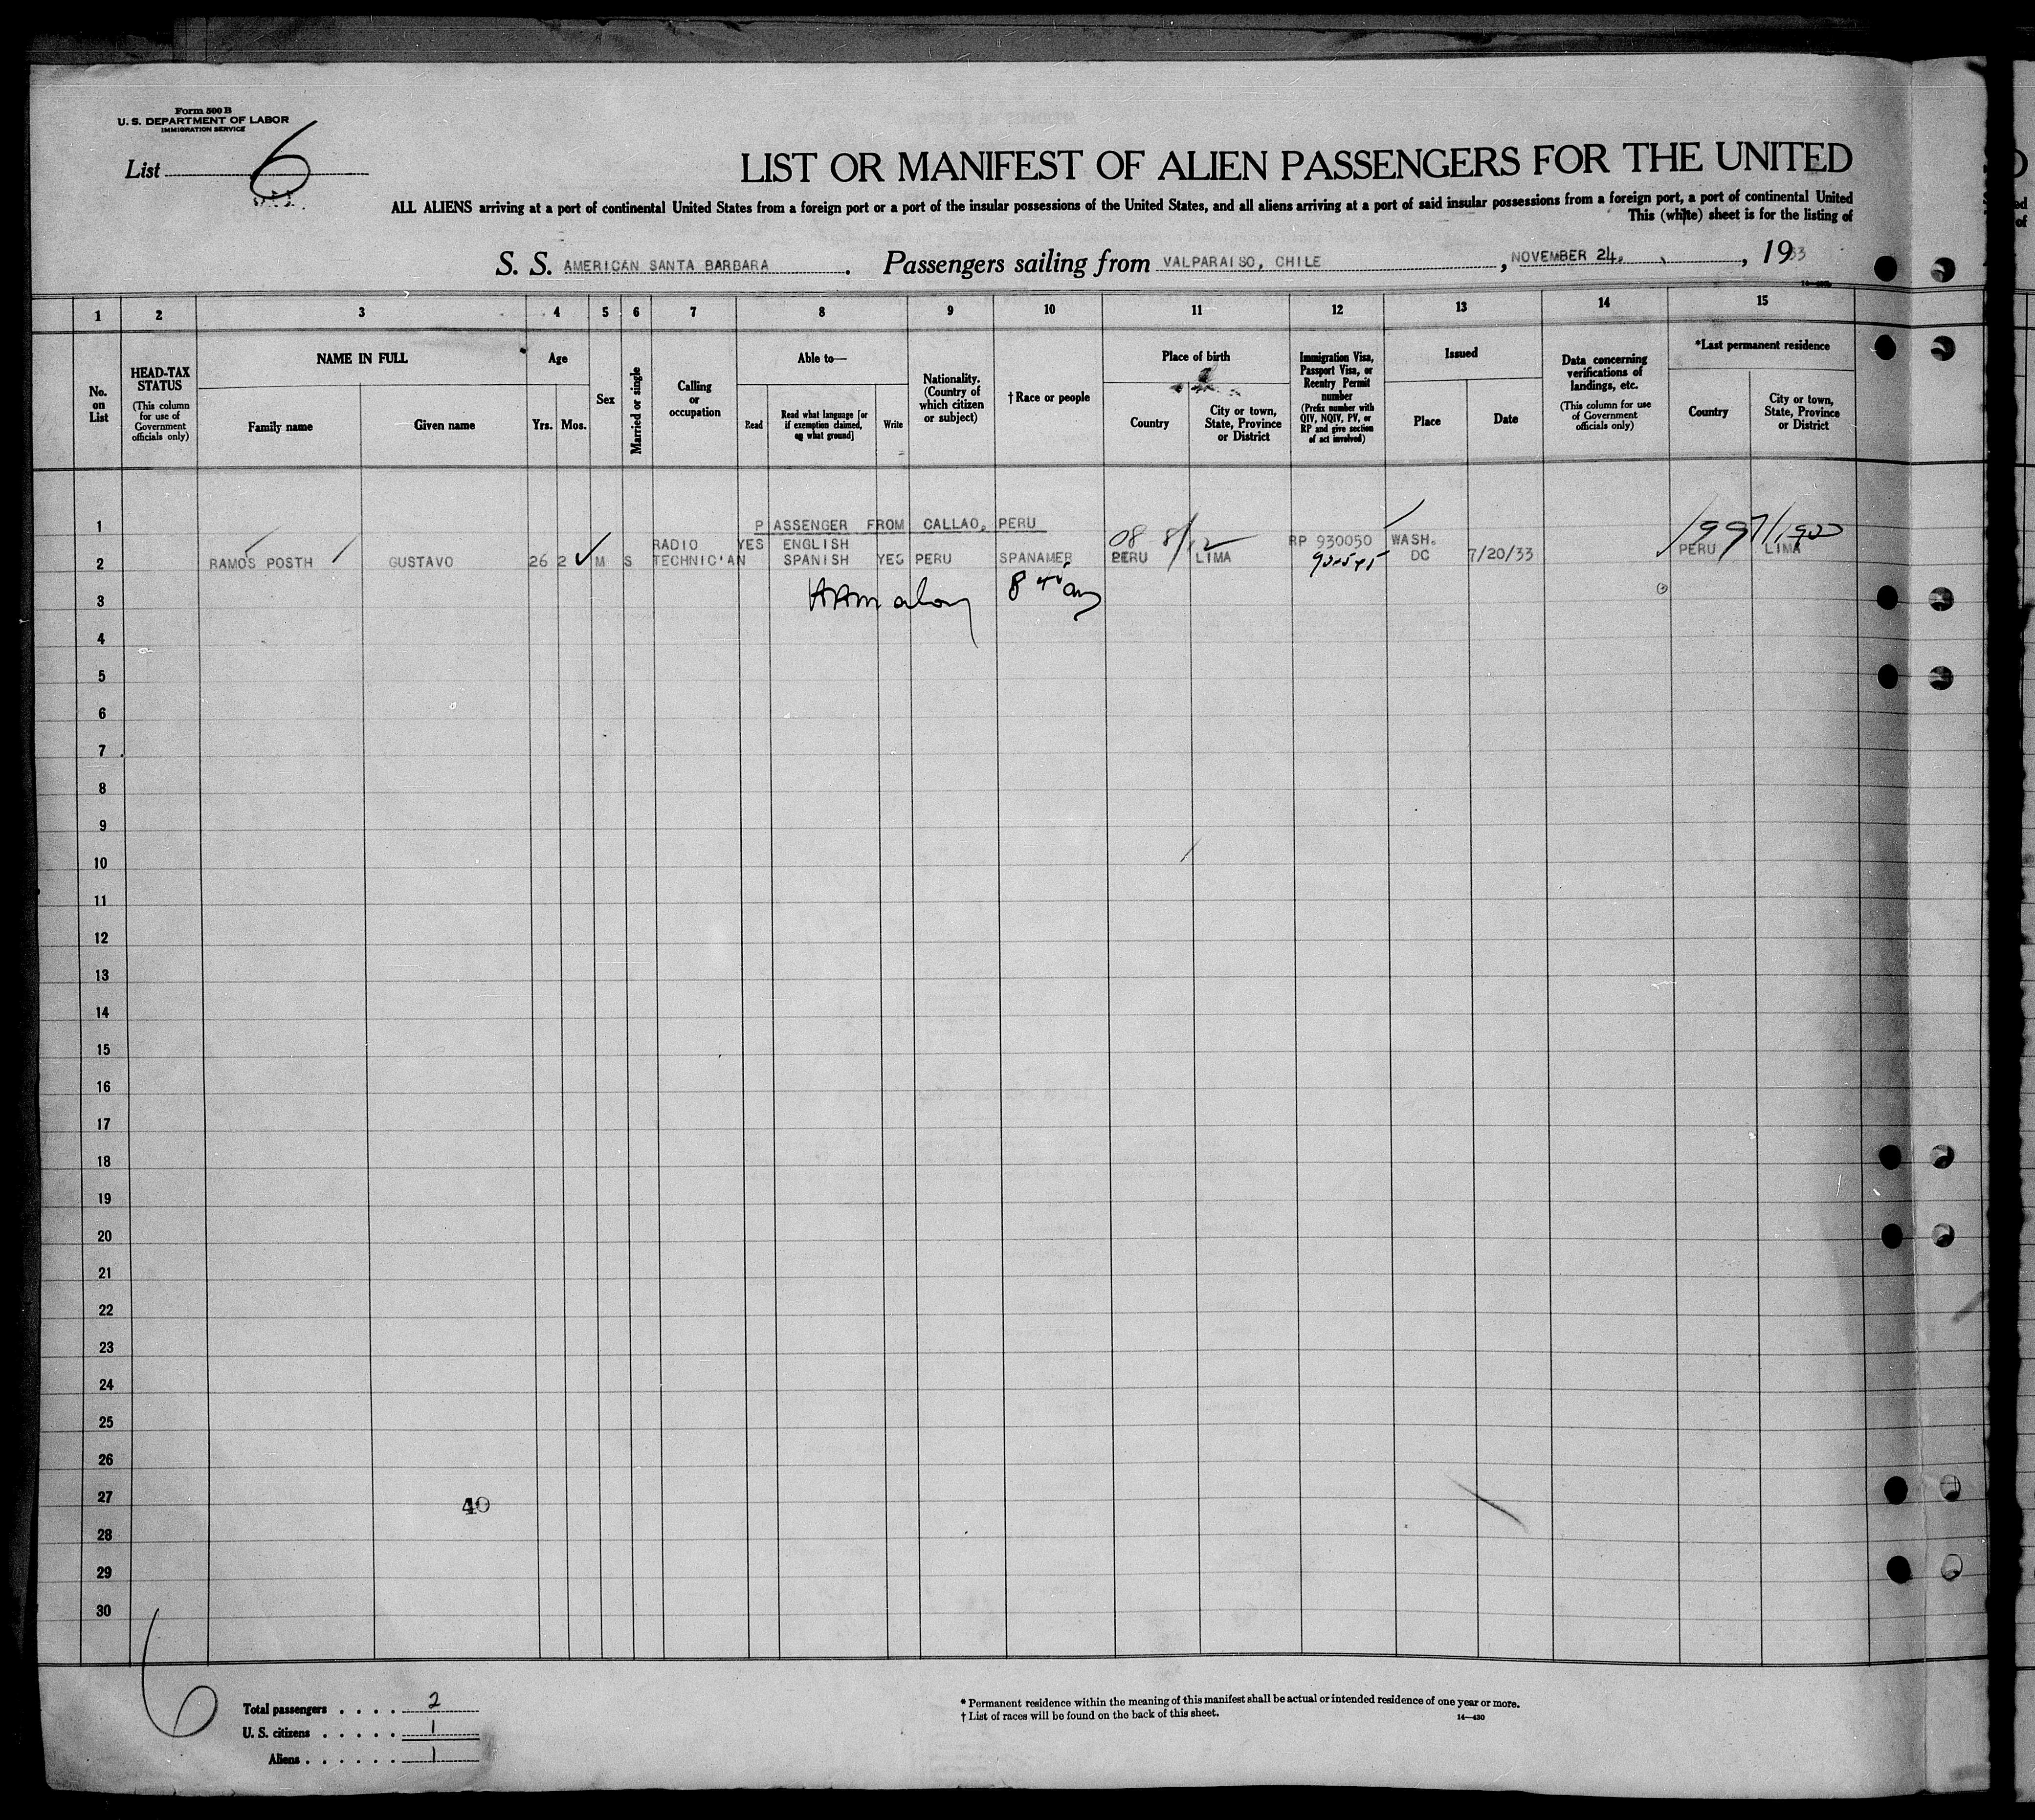 Form 500 B
U. S. DEPARTMENT OF LABOR
IMMIGRATION SERVICE
List 6
LIST OR MANIFEST OF ALIEN PASSENGERS FOR THE UNITED
ALL ALIENS arriving at a port of continental United States from a foreign port or a port of the insular possessions of the United States, and all aliens arriving at a port of said insular possessions from a foreign port, a port of continental United
This (white) sheet is for the listing of
S. S. AMERICAN SANTA BARBARA. Passengers sailing from VALPARAISO, CHILE, NOVEMBER 24, 1933
1 2 3 4 5 6 7 8 9 10 11 12 13 14 15
No. on List
HEAD-TAX STATUS (This column for use of Government officials only)
NAME IN FULL
Family name
Given name
Age
Yrs. Mos.
Sex
Married or single
Calling or occupation
Able to—
Read
Read what language [or if exemption claimed, on what ground]
Write
Nationality. (Country of which citizen or subject)
† Race or people
Place of birth
Country
City or town, State, Province or District
Immigration Visa, Passport Visa, or Reentry Permit number (Prefix number with QIV, NQIV, PV, or RP and give section of act involved)
Issued
Place
Date
Data concerning verifications of landings, etc. (This column for use of Government officials only)
*Last permanent residence
Country
City or town, State, Province or District
1 PASSENGER FROM CALLAO, PERU
RADIO YES ENGLISH RP 930050 WASH.
2 RAMOS POSTH GUSTAVO 26 2 M S TECHNIC'AN SPANISH YES PERU SPANAMER PERU LIMA DC 7/20/33 PERU LIMA
3
4
5
6
7
8
9
10
11
12
13
14
15
16
17
18
19
20
21
22
23
24
25
26
27
40
28
29
30
6
Total passengers . . . . 2
U. S. citizens . . . . . 1
Aliens . . . . . . 1
* Permanent residence within the meaning of this manifest shall be actual or intended residence of one year or more.
† List of races will be found on the back of this sheet.
14—430